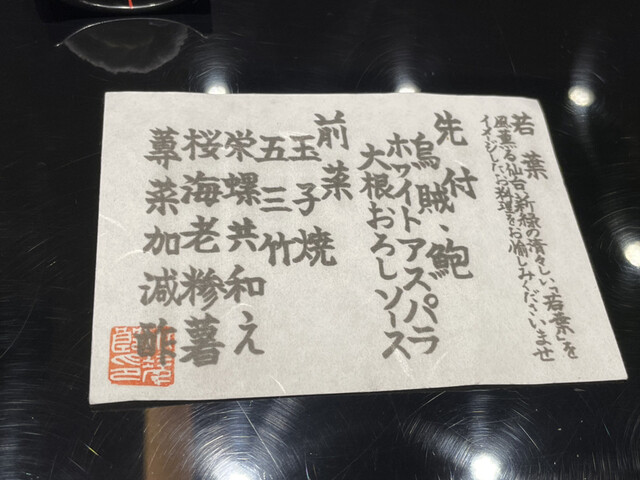 若葉
風薫る仙台・新緑の清々しい「若葉」を
イメージしたお料理をお愉しみくださいませ
先付
烏賊、鮑
ホワイトアスパラ
大根おろしソース
前菜
玉子焼
五三竹
栄螺共和え
桜海老糝薯
蓴菜加減酢